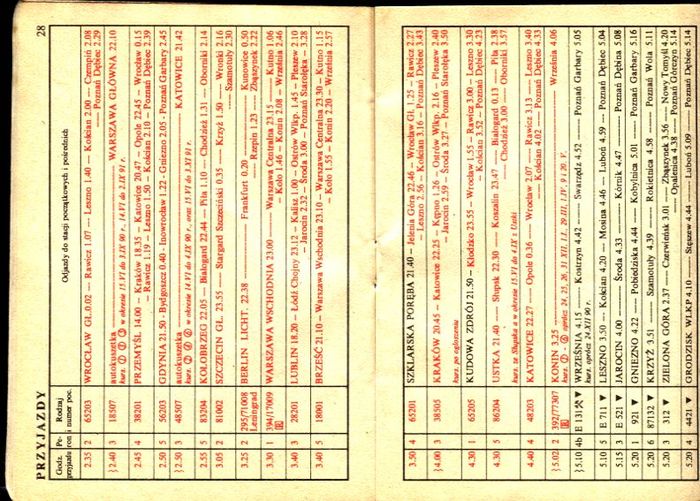 PRZYJAZDY 28
Godz. przyjazdu Pe-ron Rodzaj i numer poc. Odjazdy do stacji początkowych i pośrednich
2.35 2 65203 WROCŁAW GŁ. 0.02 — Rawicz 1.07 — Leszno 1.40 — Kościan 2.00 — Czempiń 2.08
— Poznań Dębiec 2.29
2.40 3 18507 autokuszetka WARSZAWA GŁÓWNA 22.10
2.45 4 38201 PRZEMYŚL 14.00 — Kraków 18.35 — Katowice 20.47 — Opole 22.45 — Wrocław 0.15
— Rawicz 1.19 — Leszno 1.50 — Kościan 2.10 — Poznań Dębiec 2.39
2.50 5 56203 GDYNIA 21.50 - Bydgoszcz 0.40 - Inowrocław 1.22 - Gniezno 2.05 - Poznań Garbary 2.45
2.50 3 48507 autokuszetka KATOWICE 21.42
2.55 5 83204 KOŁOBRZEG 22.05 — Białogard 22.44 — Piła 1.10 — Chodzież 1.31 — Oborniki 2.14
3.05 2 81002 SZCZECIN GŁ. 23.55 — Stargard Szczeciński 0.35 — Krzyż 1.50 — Wronki 2.16
— Szamotuły 2.30
3.25 2 295/71008 Leningrad BERLIN LICHT. 22.38 Frankfurt 0.20 Kunowice 0.50
Rzepin 1.23 Zbąszynek 2.22
3.30 1 394/17009 WARSZAWA WSCHODNIA 23.00 Warszawa Centralna 23.15 — Kutno 1.06
— Koło 1.46 — Konin 2.08 — Września 2.46
3.40 3 28201 LUBLIN 18.20 — Łódź Chojny 23.12 — Kalisz 1.00 — Ostrów Wlkp. 1.45 — Pleszew 2.10
— Jarocin 2.32 — Środa 3.00 — Poznań Starołęka — 3.28
3.40 5 18001 BRZEŚĆ 21.10 — Warszawa Wschodnia 23.10 — Warszawa Centralna 23.30 — Kutno 1.15
— Koło 1.55 — Konin 2.20 — Września 2.57
3.50 4 65201 SZKLARSKA PORĘBA 21.40 — Jelenia Góra 22.46 — Wrocław Gł. 1.25 — Rawicz 2.27
— Leszno 2.56 — Kościan 3.16 — Poznań Dębiec 3.43
4.00 3 38505 KRAKÓW 20.45 — Katowice 22.25 — Kępno 1.26 — Ostrów Wlkp. 2.16 — Pleszew 2.40
kurs. po ogłoszeniu — Jarocin 2.59 — Środa 3.27 — Poznań Starołęka 3.50
4.30 1 65205 KUDOWA ZDRÓJ 21.50 — Kłodzko 23.55 — Wrocław 1.55 — Rawicz 3.00 — Leszno 3.30
— Kościan 3.52 — Poznań Dębiec 4.23
4.30 5 86204 USTKA 21.40 — Słupsk 22.30 — Koszalin 23.47 — Białogard 0.13 — Piła 2.38
— Chodzież 3.00 — Oborniki 3.57
4.40 4 48203 KATOWICE 22.27 — Opole 0.36 — Wrocław 2.07 — Rawicz 3.13 — Leszno 3.40
— Kościan 4.02 — Poznań Dębiec 4.33
5.02 2 392/77307 KONIN 3.25 Września 4.06
5.10 4b E 131 WRZEŚNIA 4.15 Kostrzyn 4.42 — Swarzędz 4.52 — Poznań Garbary 5.05
kurs. oprócz 24.XII 90 r.
5.10 5 E 711 LESZNO 3.50 — Kościan 4.20 — Mosina 4.46 — Luboń 4.59 — Poznań Dębiec 5.04
5.15 3 E 521 JAROCIN 4.00 Środa 4.33 Kórnik 4.47 Poznań Dębina 5.08
5.20 1 921 GNIEZNO 4.22 — Pobiedziska 4.44 — Kobylnica 5.01 — Poznań Garbary 5.16
5.20 6 87132 KRZYŻ 3.51 — Szamotuły 4.39 — Rokietnica 4.58 — Poznań Wola 5.11
5.20 3 312 ZIELONA GÓRA 2.37 — Czerwieńsk 3.01 — Zbąszynek 3.56 — Nowy Tomyśl 4.20
— Opalenica 4.38 — Poznań Górczyn 5.14
5.20 4 4421 GRODZISK WLKP 4.10 — Stęszew 4.44 — Luboń 5.09 — Poznań Dębiec 5.14